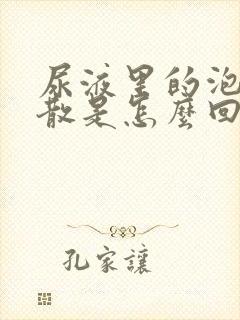 尿液里的泡
散是怎麼回
孔家讓